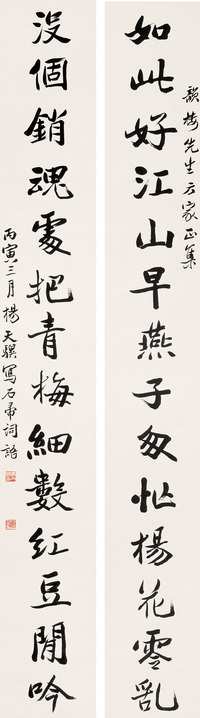 如此好江山早燕子匆忙楊花零亂
韻梅先生方家正集
沒個銷魂處把青梅細數紅豆閒吟
丙寅三月楊天驥寫石帚詞語